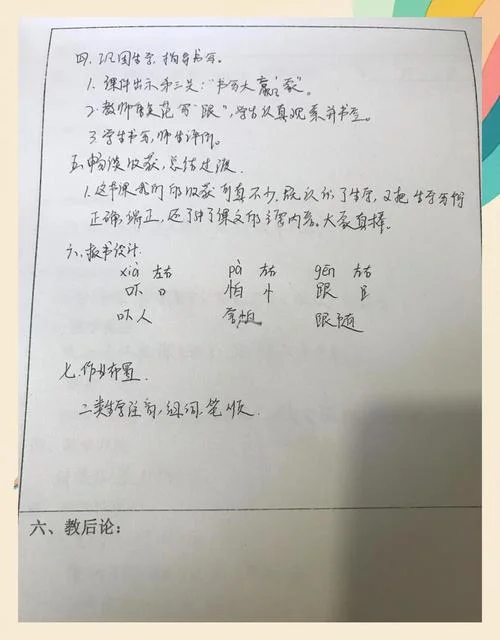 四、巩固生字,指导书写。
1.课件出示第三关:“书写大赢家”。
2.教师重点范写“跟”,学生认真观察并书空。
3.学生书写,师生评价。
五、畅谈收获,总结过渡.
1.这节课我们的收获可真不少,既认识了生字,又把生字写得
正确,端正,还了解了课文的主要内容。大家真棒。
六、板书设计.
xià 左右 pà 左右 gēn 左右
吓 口 怕 忄 跟 𧾷
吓人 害怕 跟随
七.作业布置.
二类生字注音,组词,笔顺.
六、教后论: